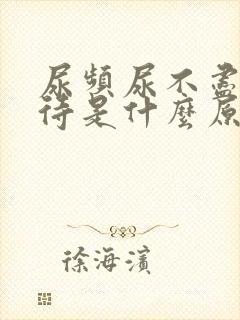 尿頻尿不盡
待是什麼原
徐海濱